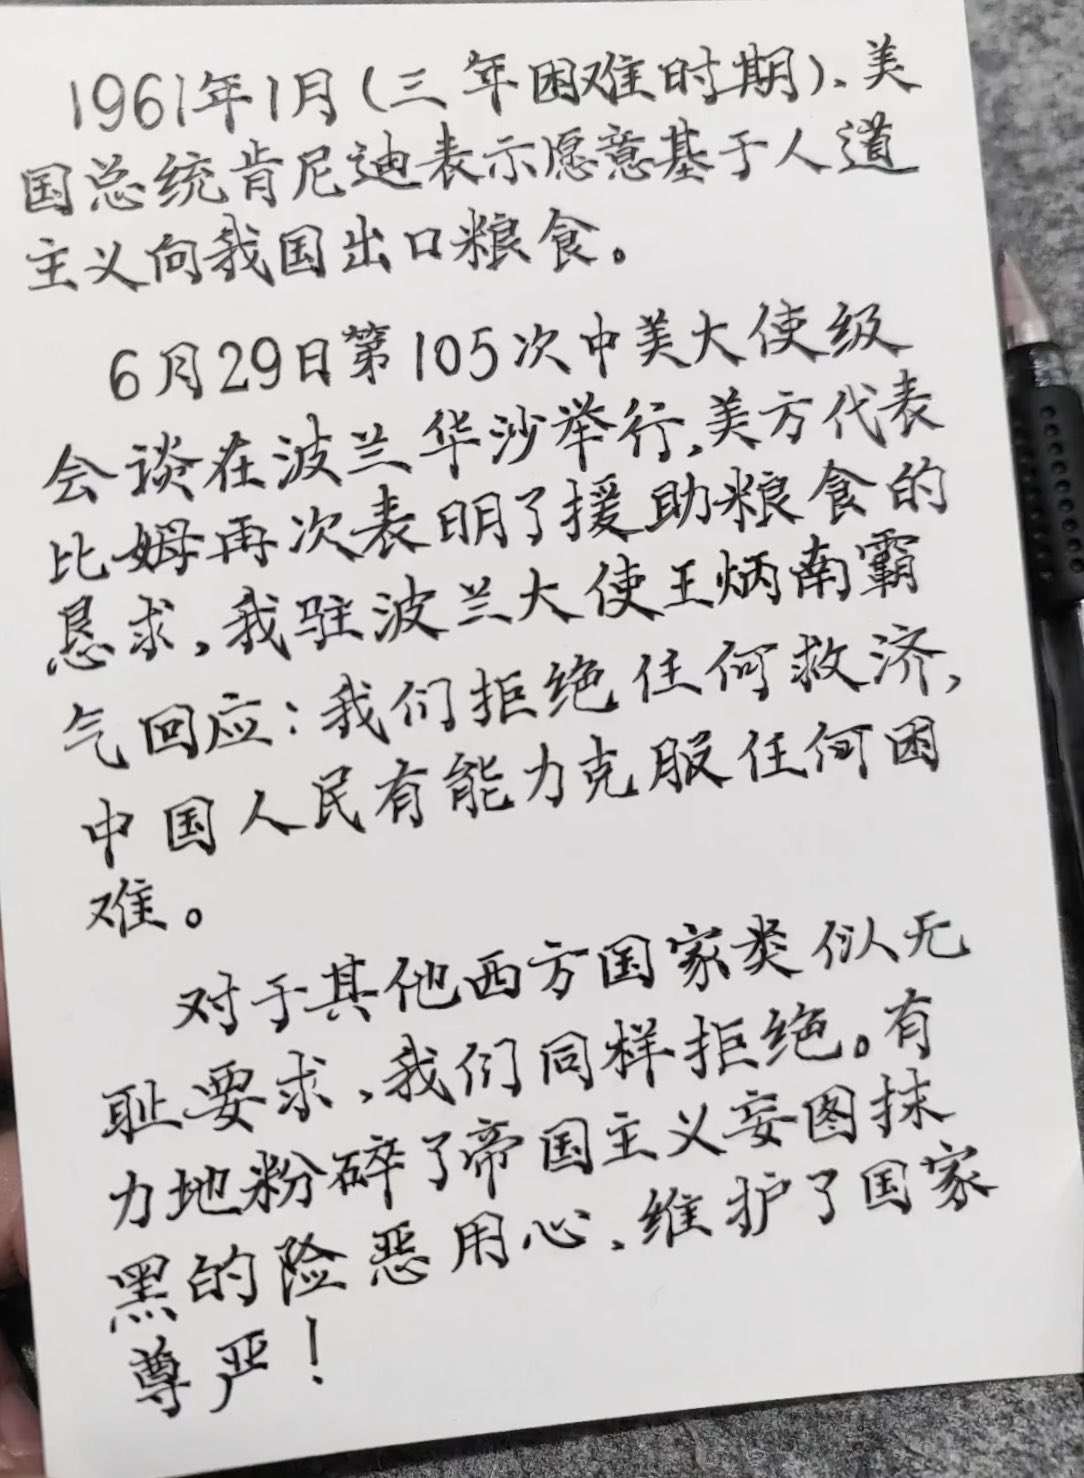 1961年1月(三年困难时期)、美
国总统肯尼迪表示愿意基于人道
主义向我国出口粮食。
6月29日第105次中美大使级
会谈在波兰华沙举行,美方代表
比姆再次表明了援助粮食的
恳求,我驻波兰大使王炳南霸
气回应:我们拒绝任何救济,
中国人民有能力克服任何困
难。
对于其他西方国家类似无
耻要求、我们同样拒绝。有
力地粉碎了帝国主义妄图抹
黑的险恶用心、维护了国家
尊严!